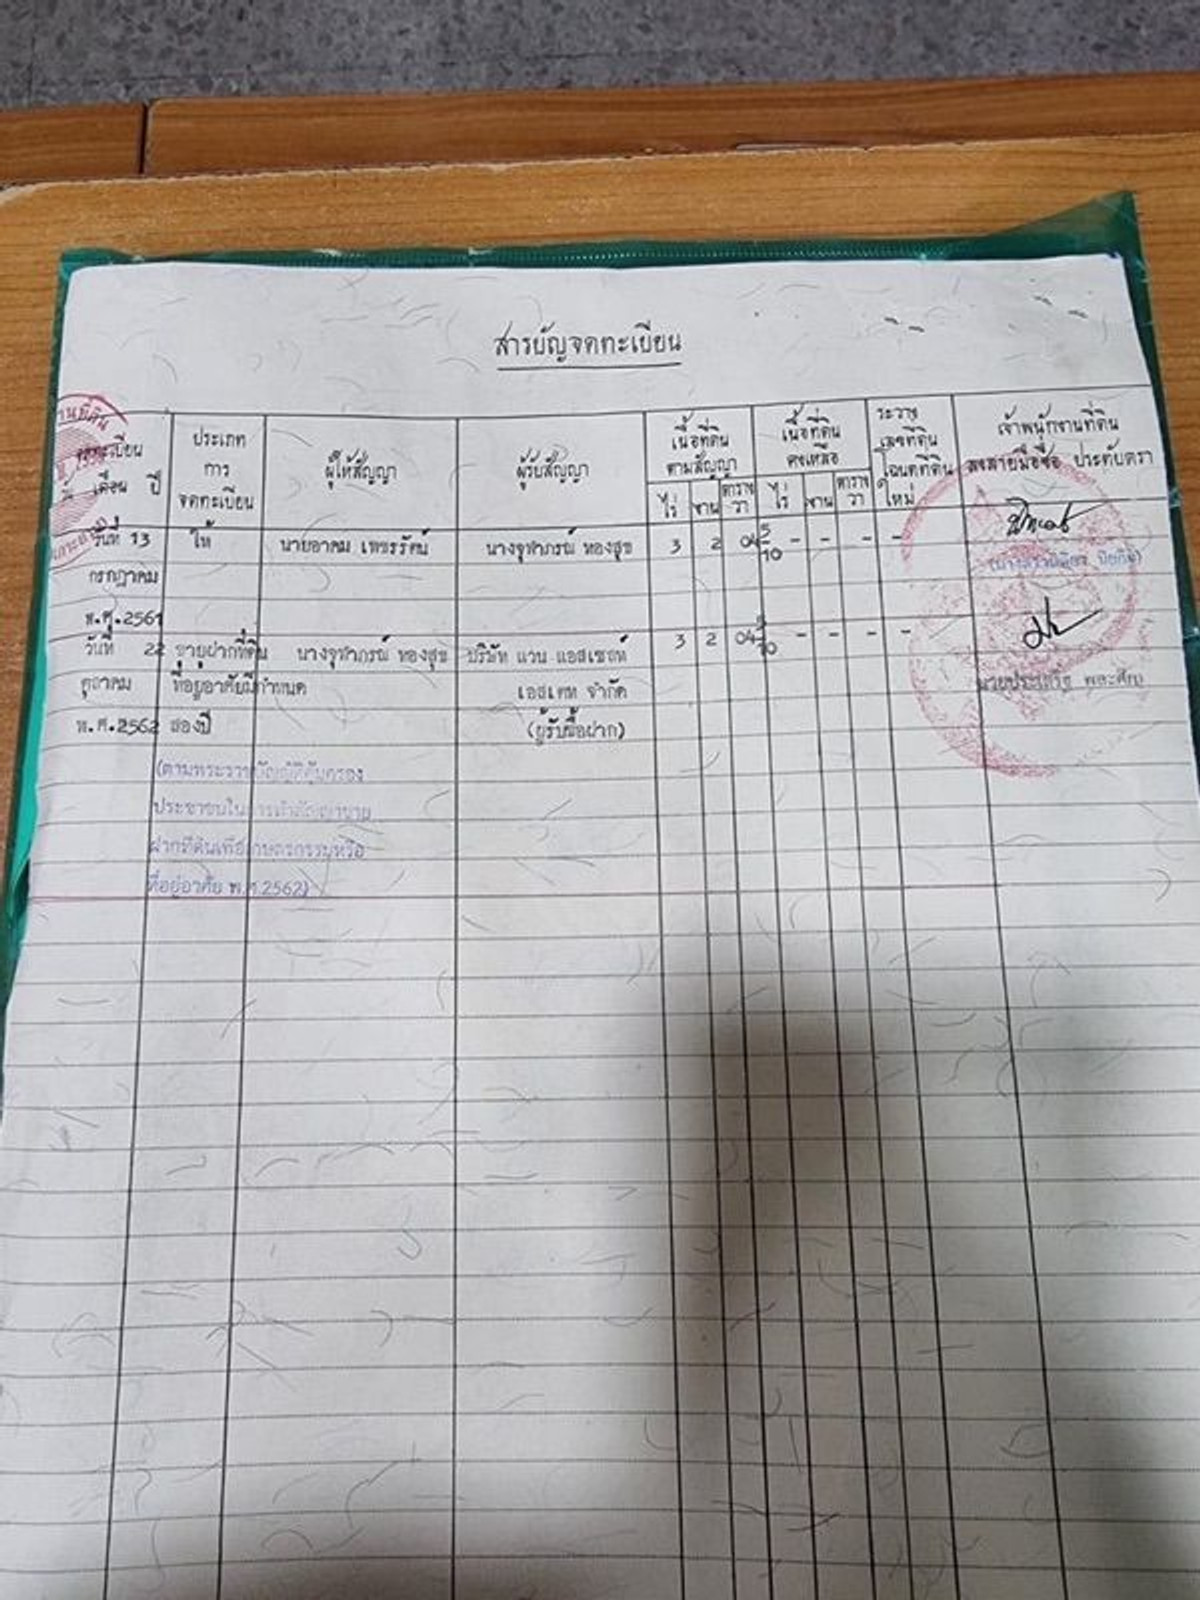 สารบัญจดทะเบียน
จดทะเบียน
เดือน ปี
ประเภท
การ
จดทะเบียน
ผู้ให้สัญญา
ผู้รับสัญญา
เนื้อที่ดิน
ตามสัญญา
ไร่ งาน ตาราง
วา
เนื้อที่ดิน
คงเหลือ
ไร่ งาน ตาราง
วา
ระวาง
เลขที่ดิน
โฉนดที่ดิน
ใหม่
เจ้าพนักงานที่ดิน
ลงลายมือชื่อ ประทับตรา
วันที่ 13 ให้ นายอาคม เพชรรัตน์ นางจุฬาภรณ์ ทองสุข 3 2 04 5/10 - - - -
กรกฎาคม
พ.ศ.2561
วันที่ 22 ขายฝากที่ดิน นางจุฬาภรณ์ ทองสุข บริษัท แวน แอสเซทท์ 3 2 04 5/10 - - - -
ตุลาคม ที่อยู่อาศัยมีกำหนด เอสเตท จำกัด
พ.ศ.2562 สองปี (ผู้รับซื้อฝาก)
(ตามพระราชบัญญัติคุ้มครอง
ประชาชนในการทำสัญญาขาย
ฝากที่ดินเพื่อเกษตรกรรมหรือ
ที่อยู่อาศัย พ.ศ.2562)